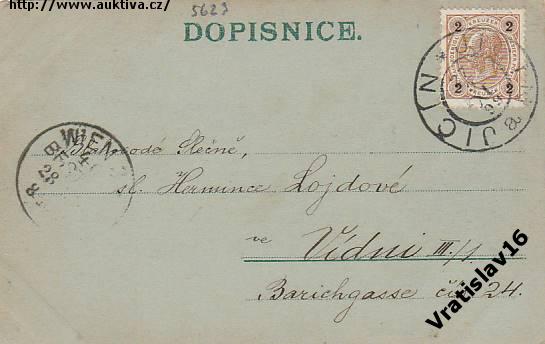 http://www.auktiva.cz/
5623
DOPISNICE.
2 2
2 2
JIČIN
WIEN
Blahorodé Slečně,
sl. Hermince Lojdové
ve Vídni III/1.
Barichgasse čís. 24.
Vratislav16